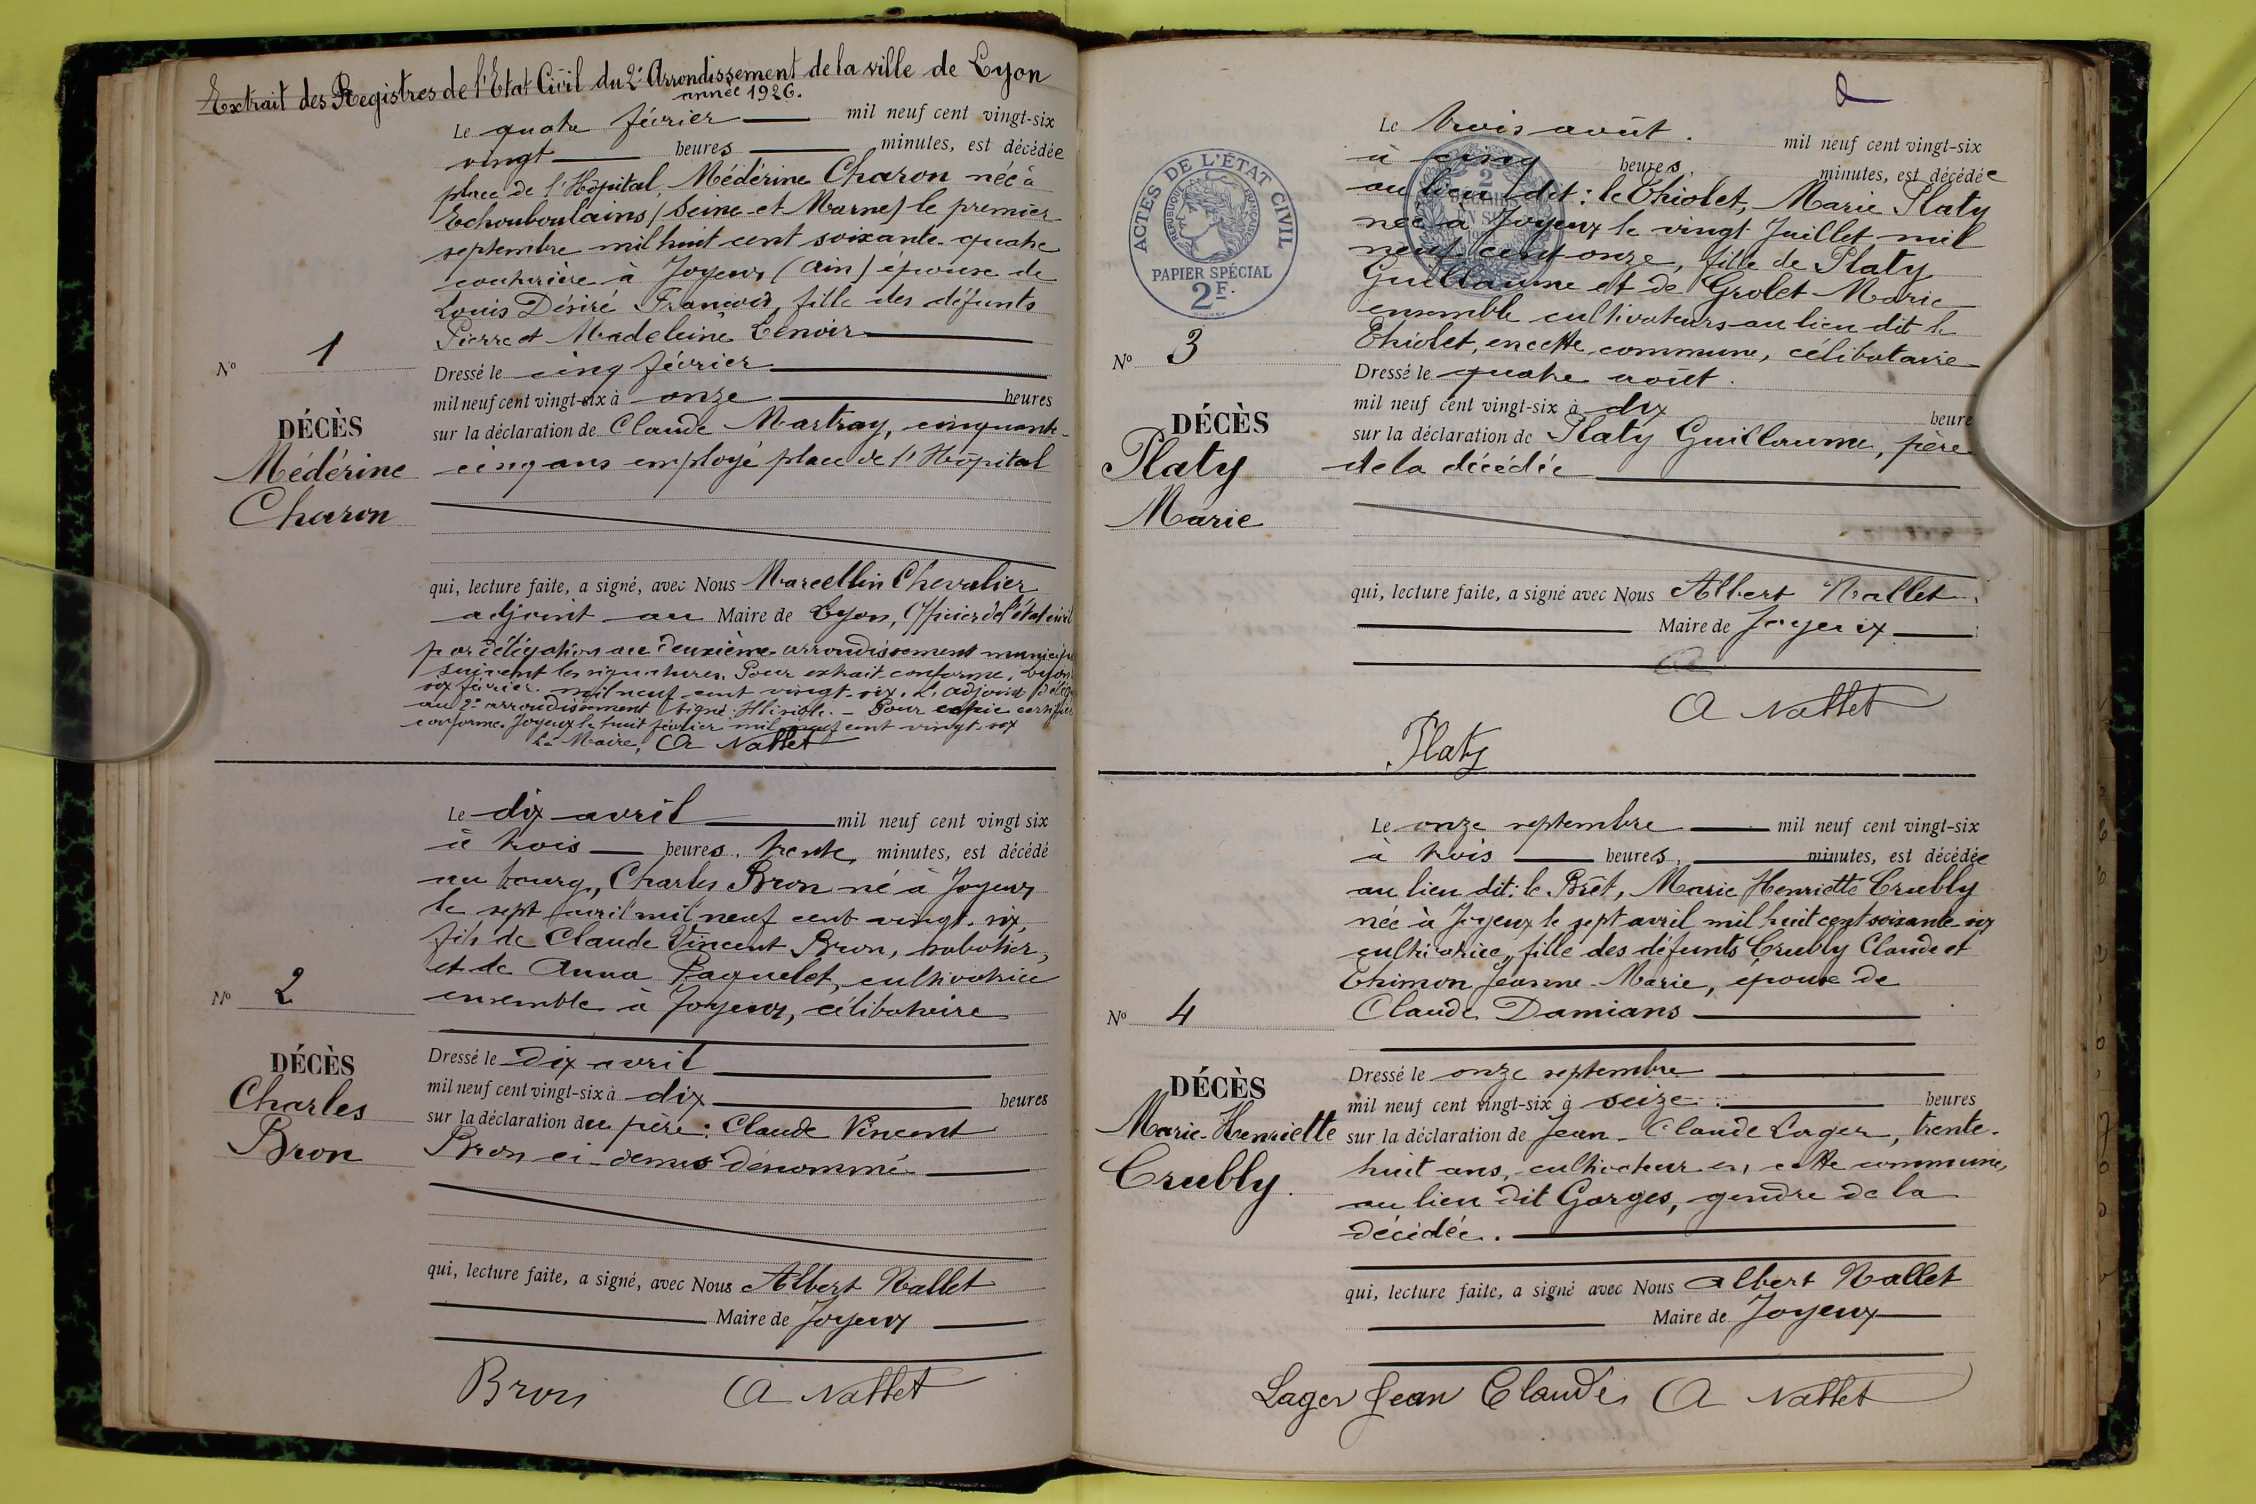 Extrait des Registres de l'Etat Civil du 2e Arrondissement de la ville de Lyon
année 1926.
Le quatre février mil neuf cent vingt-six
vingt heures minutes, est décédée
place de l'Hôpital, Médérine Charon née à
Echouboulains (Seine-et-Marne) le premier
septembre mil huit cent soixante-quatre
couturière à Joyeux (Ain) épouse de
Louis Désiré François, fille des défunts
Pierre et Madeleine Lenoir
No 1
DÉCÈS
Médérine
Charon
Dressé le cinq février
mil neuf cent vingt-six à onze heures
sur la déclaration de Claude Martray, cinquante-
cinq ans employé place de l'Hôpital
qui, lecture faite, a signé, avec Nous Marcellin Chevalier
adjoint au Maire de Lyon, Officier de l'état civil
par délégation au deuxième arrondissement municipal
suivent les signatures. Pour extrait conforme, Lyon
six février mil neuf cent vingt-six. L'adjoint délégué
au 2e arrondissement signé: Illisible. - Pour copie certifiée
conforme. Joyeux le huit février mil neuf cent vingt-six
Le Maire, A Nallet
Le dix avril mil neuf cent vingt six
à trois heures, trente minutes, est décédé
au bourg, Charles Bron né à Joyeux
le sept avril mil neuf cent vingt-six,
fils de Claude Vincent Bron, sabotier,
et de Anna Paquelet, cultivatrice
ensemble à Joyeux, célibataire
No 2
DÉCÈS
Charles
Bron
Dressé le dix avril
mil neuf cent vingt-six à dix heures
sur la déclaration du père: Claude Vincent
Bron ci-dessus dénommé
qui, lecture faite, a signé, avec Nous Albert Nallet
Maire de Joyeux
Bron A Nallet
ACTES DE L'ÉTAT CIVIL
REPUBLIQUE FRANÇAISE
PAPIER SPÉCIAL
2F.
Le trois août mil neuf cent vingt-six
à cinq heures, minutes, est décédée
au lieu dit: le Thiolet, Marie Platy
née à Joyeux le vingt Juillet mil
neuf cent onze, fille de Platy
Guillaume et de Grolet Marie
ensemble cultivateurs au lieu dit le
Thiolet, en cette commune, célibataire
No 3
DÉCÈS
Platy
Marie
Dressé le quatre août
mil neuf cent vingt-six à dix heure
sur la déclaration de Platy Guillaume, père
de la décédée
qui, lecture faite, a signé avec Nous Albert Nallet
Maire de Joyeux
A Nallet
Platy
Le onze septembre mil neuf cent vingt-six
à trois heures, minutes, est décédée
au lieu dit: le Brêt, Marie Henriette Crubly
née à Joyeux le sept avril mil huit cent soixante-six
cultivatrice, fille des défunts Crubly Claude et
Thimon Jeanne-Marie, épouse de
Claude Damians
No 4
DÉCÈS
Marie-Henriette
Crubly.
Dressé le onze septembre
mil neuf cent vingt-six à seize heures
sur la déclaration de Jean-Claude Lager, trente-
huit ans, cultivateur en cette commune,
au lieu dit Gorges, gendre de la
décédée.
qui, lecture faite, a signé avec Nous Albert Nallet
Maire de Joyeux
Lager Jean Claude A Nallet